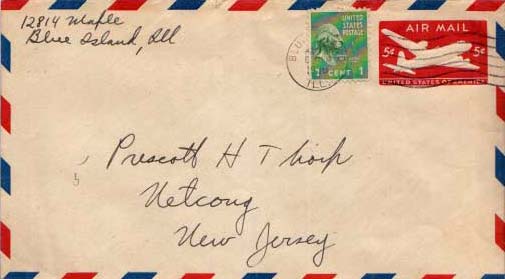 12814 Maple
Blue Island, Ill
UNITED STATES POSTAGE
1 CENT 1
AIR MAIL
5¢ 5¢
UNITED STATES OF AMERICA
ILL.
Prescott H Thorp
Netcong
New Jersey